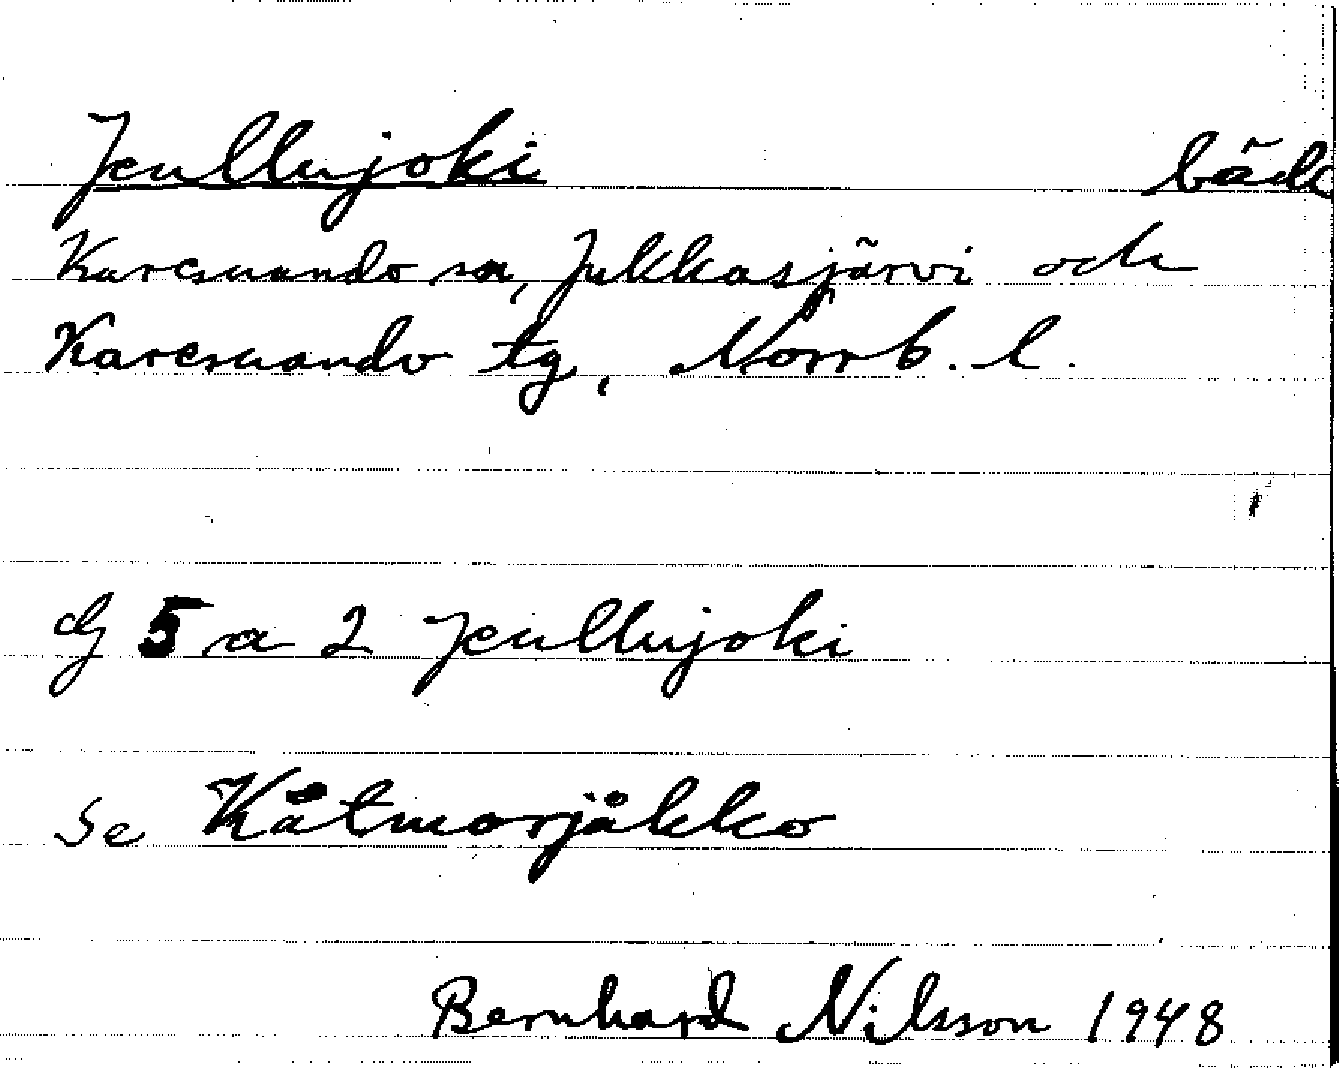 Jeullujoki bäck
Karesuando sn, Jukkasjärvi och
Karesuando tg, Norrb. l.
dg 5 a 2 Jeullujoki
Se Kåtmorjåkko
Bernhard Nilsson 1948